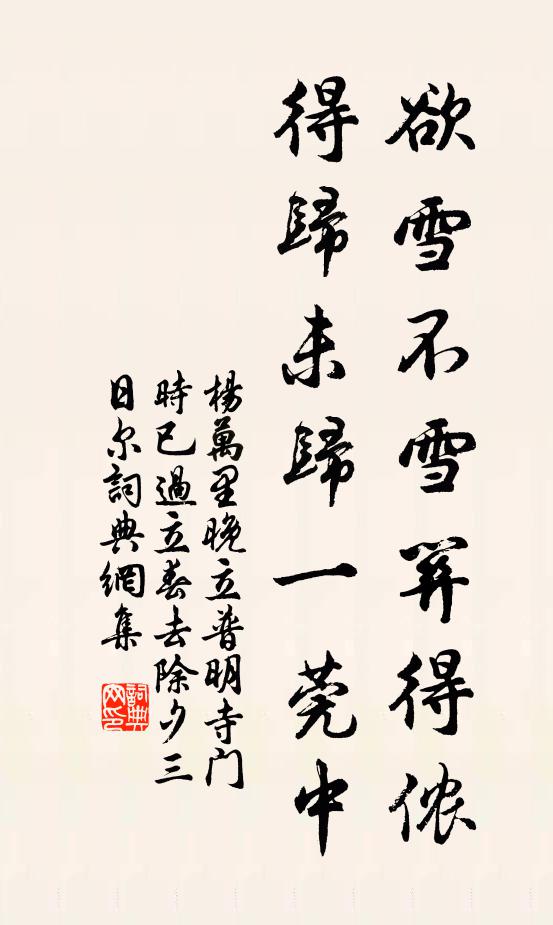 欲雪不雪关得侬
得歸未歸一莞中
楊萬里晚立普明寺门
時已過立春去除夕三
日尔詞典網集
詞典
网印